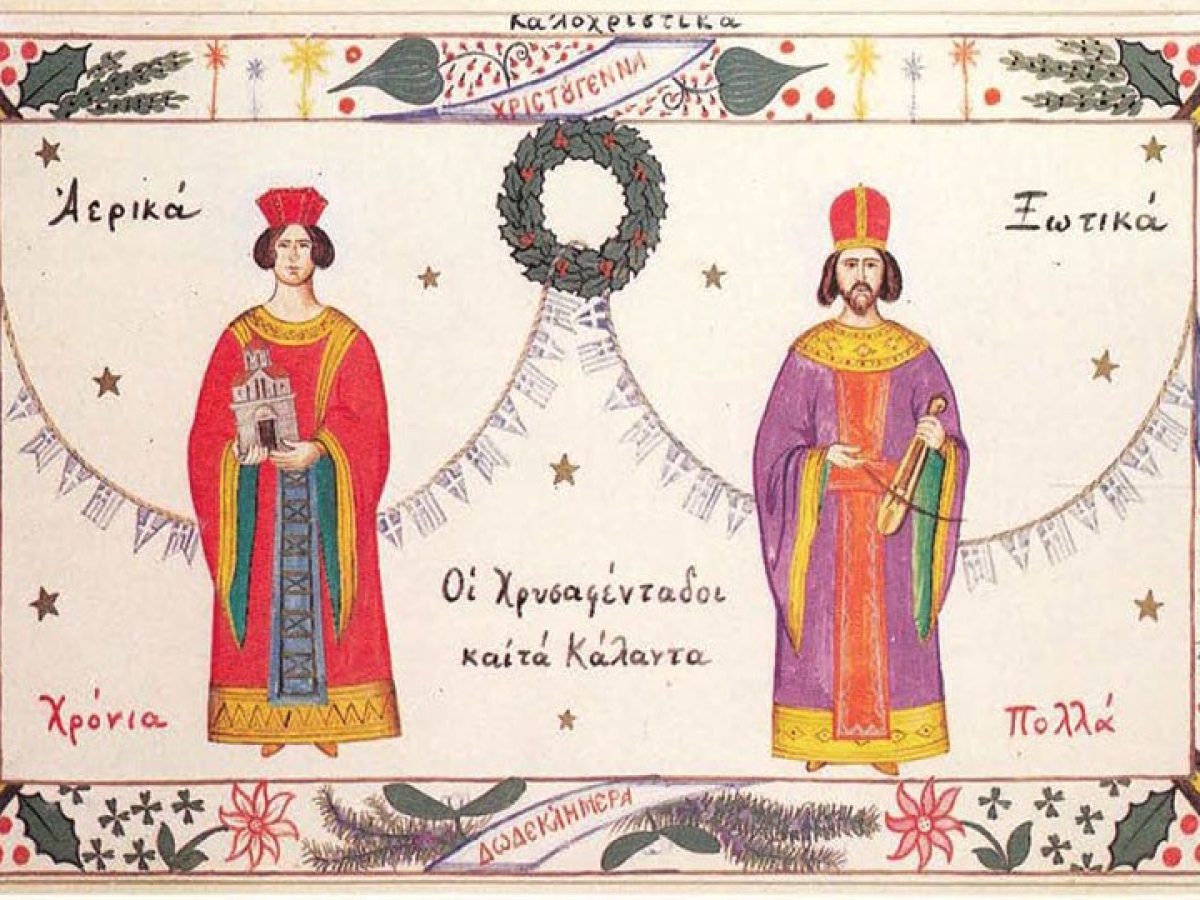 καλοχριστικα
ΧΡΙCΤΟΥΓΕΝΝΑ
Ἀερικά
Ξωτικά
Οἱ Χρυσαφένταδοι
καί τά Κάλαντα
Χρόνια
Πολλά
ΔΩΔΕΚΑΗΜΕΡΑ